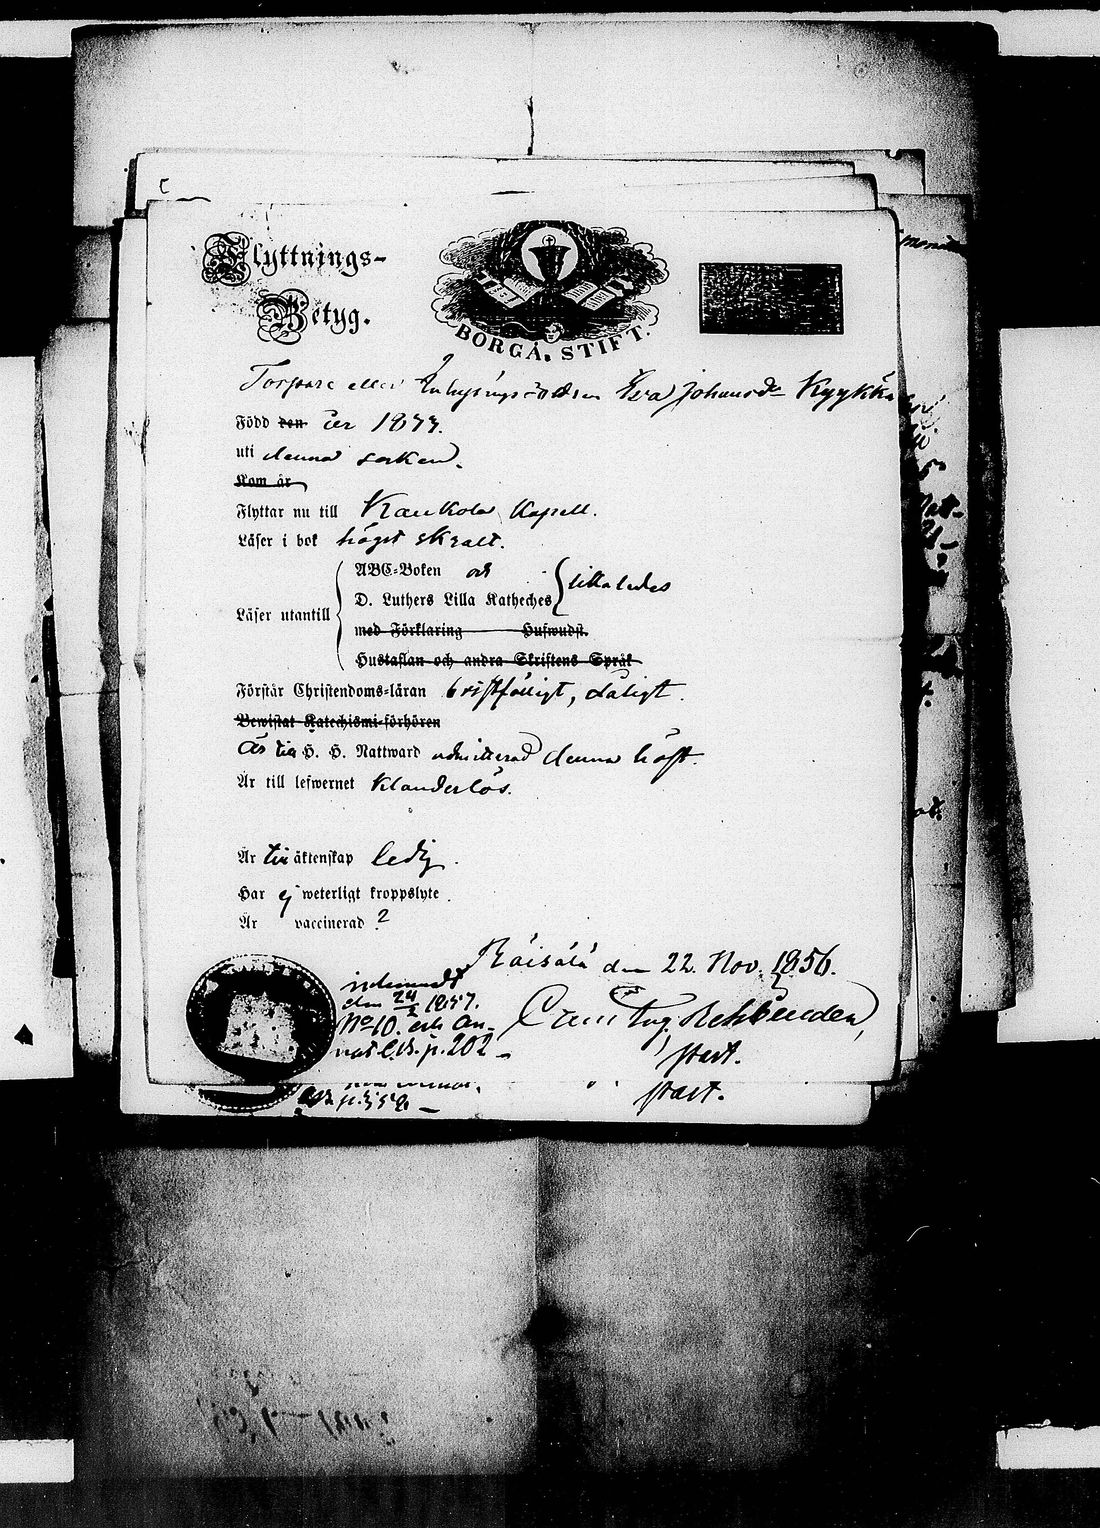 Flyttnings-
Betyg.
BORGÅ STIFT.
Torpare eller Eva Johansdr Kyykkä
Född den år
uti denna socken.
Kom år
Flyttar nu till Kaukola Kapell.
Läser i bok högst skralt.
ABC-Boken och
D. Luthers Lilla Katheches } likaledes
Läser utantill
med Förklaring Hufwudst.
Hustaflan och andra Skriftens Språk
Förstår Christendoms-läran bristfälligt, dåligt.
Bewistat Katechismi-förhören
Är till H. H. Nattward admitterad denna höst.
Är till lefwernet klanderlös.
Är till äktenskap ledig.
Har ej weterligt kroppslyte.
Är vaccinerad ?
Räisälä den 22. Nov. 1856.
inlemnadt
den 24/2 1857.
No 10. och An-
not. C.B. p. 202
past.
p. 358
past.